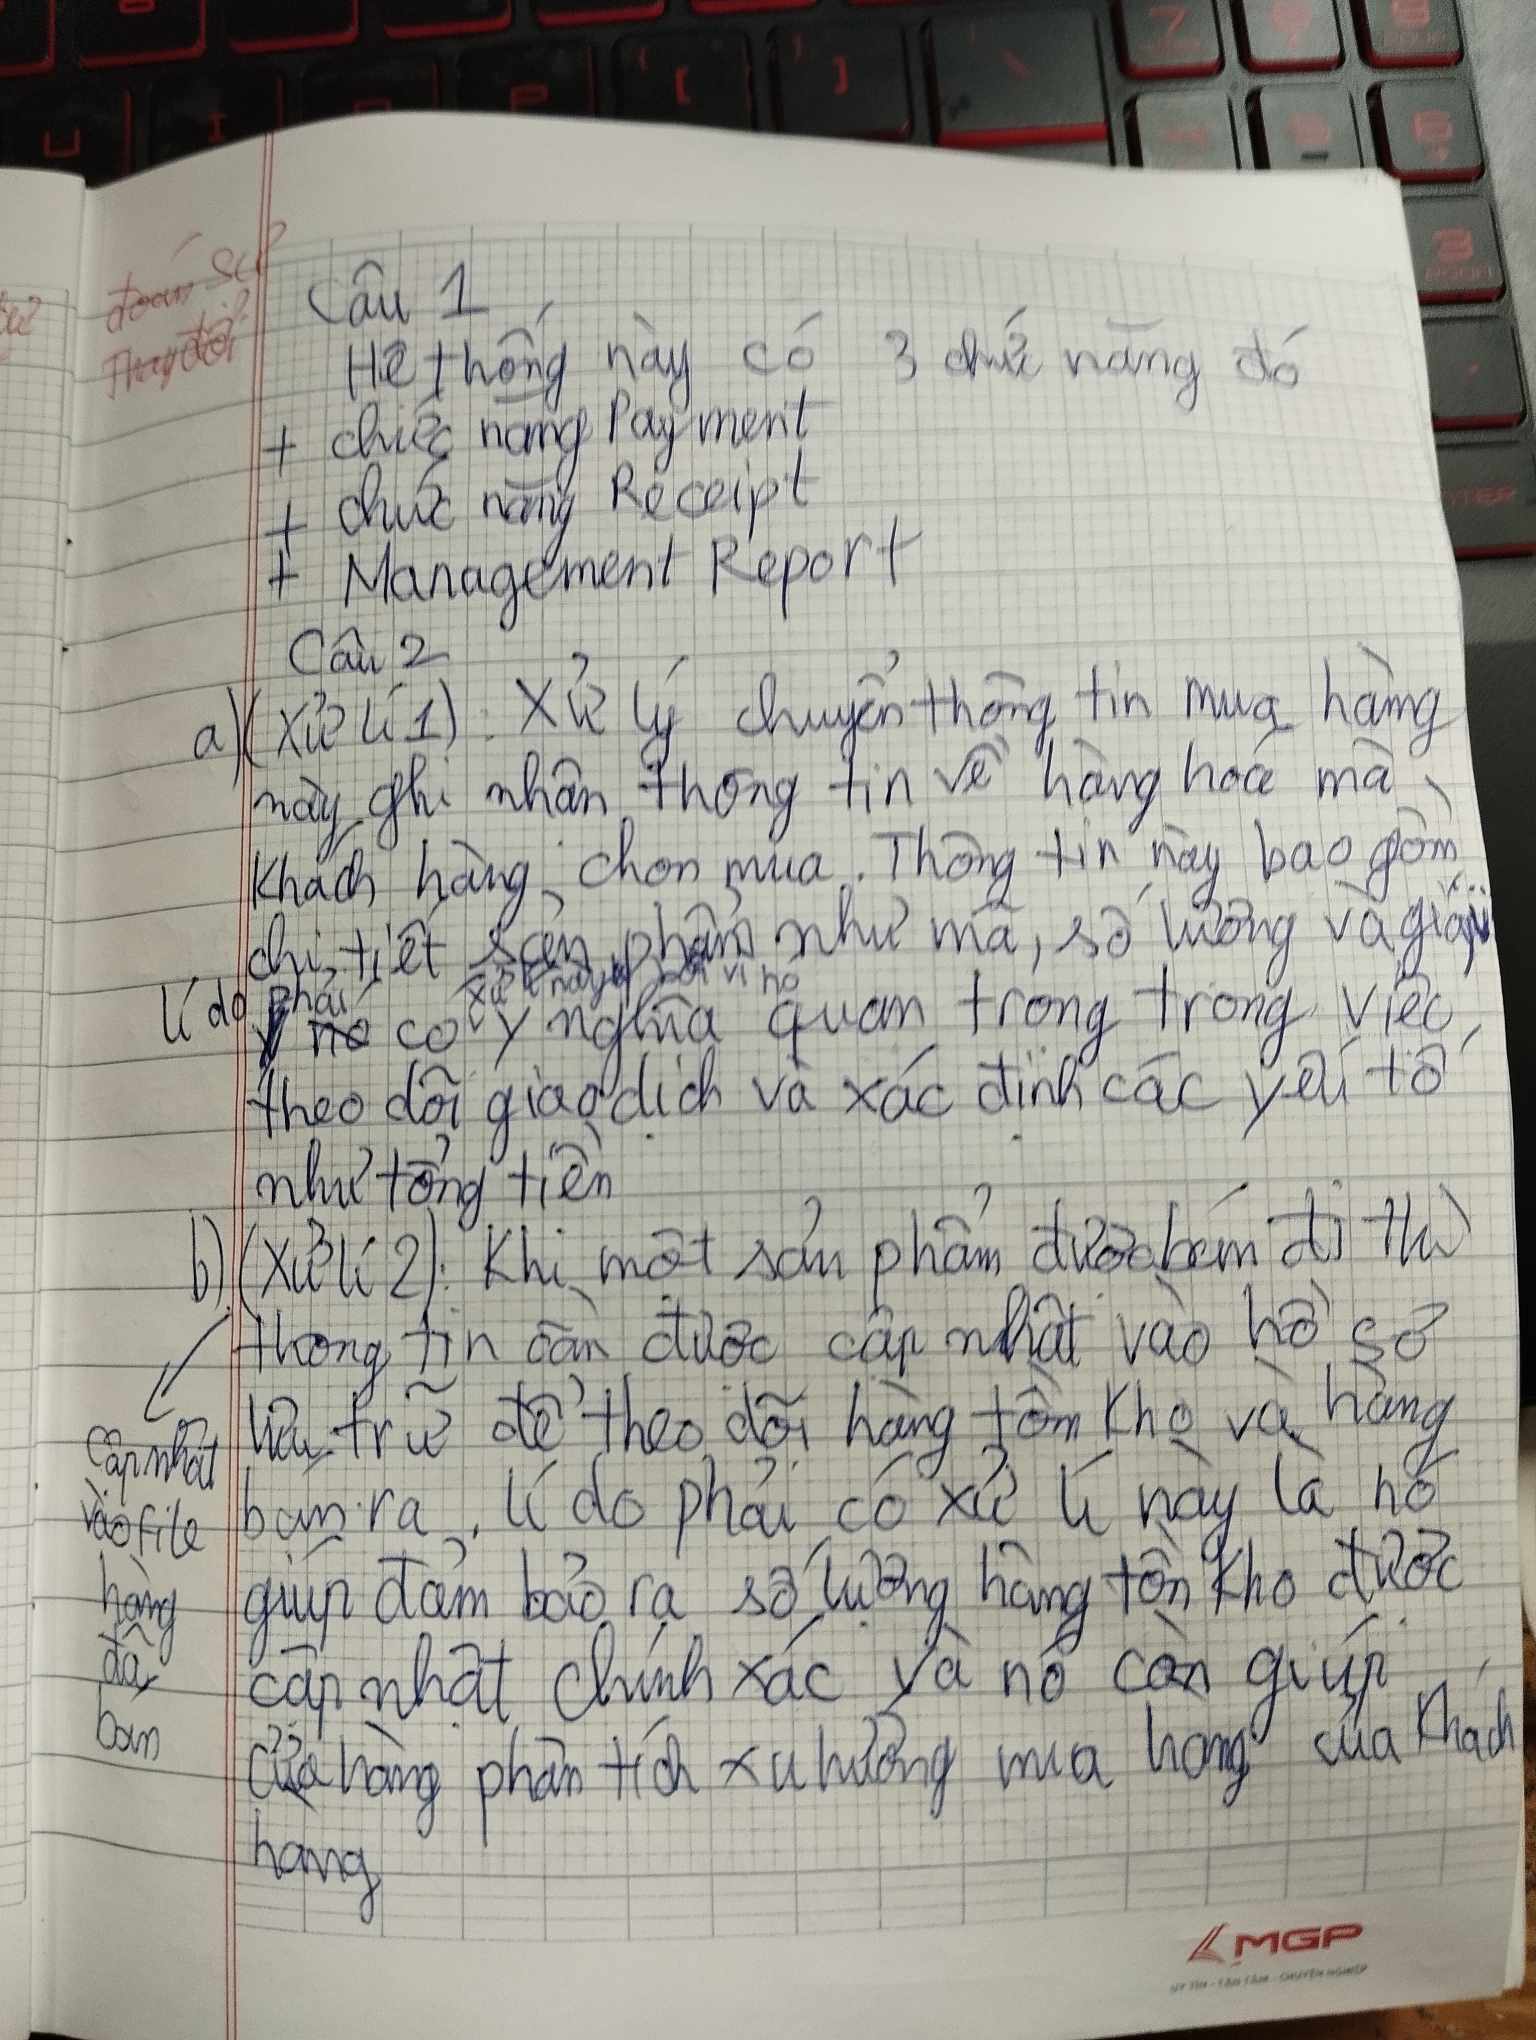 đoán sự
thay đổi
Câu 1
Hệ thống này có 3 chức năng đó
+ chức năng Payment
+ chức năng Receipt
+ Management Report
Câu 2
a) (Xử lí 1): Xử lý chuyển thông tin mua hàng
này ghi nhận thông tin về hàng hoá mà
khách hàng chọn mua. Thông tin này bao gồm
chi tiết sản phẩm như mã, số lượng và giá
Lí do phải xử lí này bởi vì nó
có ý nghĩa quan trọng trong việc
theo dõi giao dịch và xác định các yếu tố
như tổng tiền
b) (Xử lí 2): Khi một sản phẩm được bán đi thì
thông tin cần được cập nhật vào hồ sơ
lưu trữ để theo dõi hàng tồn kho và hàng
bán ra. Lí do phải có xử lí này là nó
giúp đảm bảo ra số lượng hàng tồn kho được
cập nhật chính xác và nó còn giúp
cửa hàng phân tích xu hướng mua hang của khách
hang
Cập nhật
vào file
hàng
đã
bán
MGP
UY TÍN - TẬN TÂM - CHUYÊN NGHIỆP
7
3
[
]
U
I
P